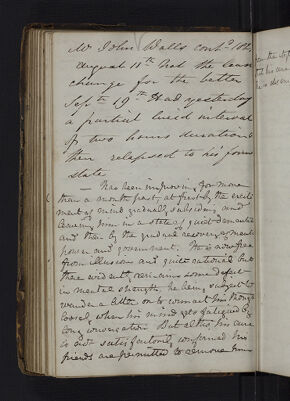 Mr John Walls contd.
August 11th Not the least
change for the better
Septr 19th Had yesterday
a partial lucid interval
of two hours duration
then relapsed to his former
state
— Has been improving for more
than a month past, at first by the excite
ment of mind gradually subsiding and
leaving him in a state of quiet dementia
and then by the gradual recovery of mental
power and government. He is now free
from illusion and quite rational but
there evidently remains some defect
in mental strength, he being subject to
wander a little or to connect his thoughts
loosely, when his mind gets fatigued by
long conversation But altho his cure
is not satisfactorily confirmed his
friends are permitted to remove him